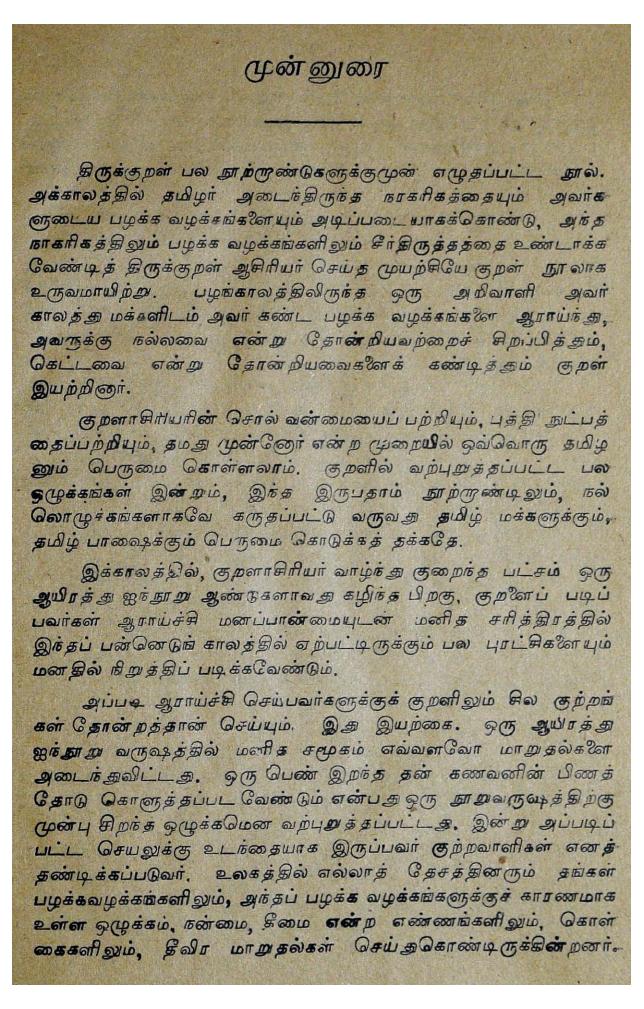 முன்னுரை
திருக்குறள் பல நூற்றாண்டுகளுக்குமுன் எழுதப்பட்ட நூல்.
அக்காலத்தில் தமிழர் அடைந்திருந்த நாகரிகத்தையும் அவர்க
ளுடைய பழக்க வழக்கங்களையும் அடிப்படையாகக்கொண்டு, அந்த
நாகரிகத்திலும் பழக்க வழக்கங்களிலும் சீர்திருத்தத்தை உண்டாக்க
வேண்டித் திருக்குறள் ஆசிரியர் செய்த முயற்சியே குறள் நூலாக
உருவமாயிற்று. பழங்காலத்திலிருந்த ஒரு அறிவாளி அவர்
காலத்து மக்களிடம் அவர் கண்ட பழக்க வழக்கங்களை ஆராய்ந்து,
அவருக்கு நல்லவை என்று தோன்றியவற்றைச் சிறப்பித்தும்,
கெட்டவை என்று தோன்றியவைகளைக் கண்டித்தும் குறள்
இயற்றினார்.
குறளாசிரியரின் சொல் வன்மையைப் பற்றியும், புத்தி நுட்பத்
தைப்பற்றியும், தமது முன்னோர் என்ற முறையில் ஒவ்வொரு தமிழ
னும் பெருமை கொள்ளலாம். குறளில் வற்புறுத்தப்பட்ட பல
ஒழுக்கங்கள் இன்றும், இந்த இருபதாம் நூற்றாண்டிலும், நல்
லொழுக்கங்களாகவே கருதப்பட்டு வருவது தமிழ் மக்களுக்கும்,
தமிழ் பாஷைக்கும் பெருமை கொடுக்கத் தக்கதே.
இக்காலத்தில், குறளாசிரியர் வாழ்ந்து குறைந்த பட்சம் ஒரு
ஆயிரத்து ஐந்நூறு ஆண்டுகளாவது கழிந்த பிறகு, குறளைப் படிப்
பவர்கள் ஆராய்ச்சி மனப்பான்மையுடன் மனித சரித்திரத்தில்
இந்தப் பன்னெடுங் காலத்தில் ஏற்பட்டிருக்கும் பல புரட்சிகளையும்
மனதில் நிறுத்திப் படிக்கவேண்டும்.
அப்படி ஆராய்ச்சி செய்பவர்களுக்குக் குறளிலும் சில குற்றங்
கள் தோன்றத்தான் செய்யும். இது இயற்கை. ஒரு ஆயிரத்து
ஐந்நூறு வருஷத்தில் மனித சமூகம் எவ்வளவோ மாறுதல்களை
அடைந்துவிட்டது. ஒரு பெண் இறந்த தன் கணவனின் பிணத்
தோடு கொளுத்தப்பட வேண்டும் என்பது ஒரு நூறுவருஷத்திற்கு
முன்பு சிறந்த ஒழுக்கமென வற்புறுத்தப்பட்டது. இன்று அப்படிப்
பட்ட செயலுக்கு உடந்தையாக இருப்பவர் குற்றவாளிகள் எனத்
தண்டிக்கப்படுவர். உலகத்தில் எல்லாத் தேசத்தினரும் தங்கள்
பழக்கவழக்கங்களிலும், அந்தப் பழக்க வழக்கங்களுக்குச் காரணமாக
உள்ள ஒழுக்கம், நன்மை, தீமை என்ற எண்ணங்களிலும், கொள்
கைகளிலும், தீவிர மாறுதல்கள் செய்துகொண்டிருக்கின்றனர்.